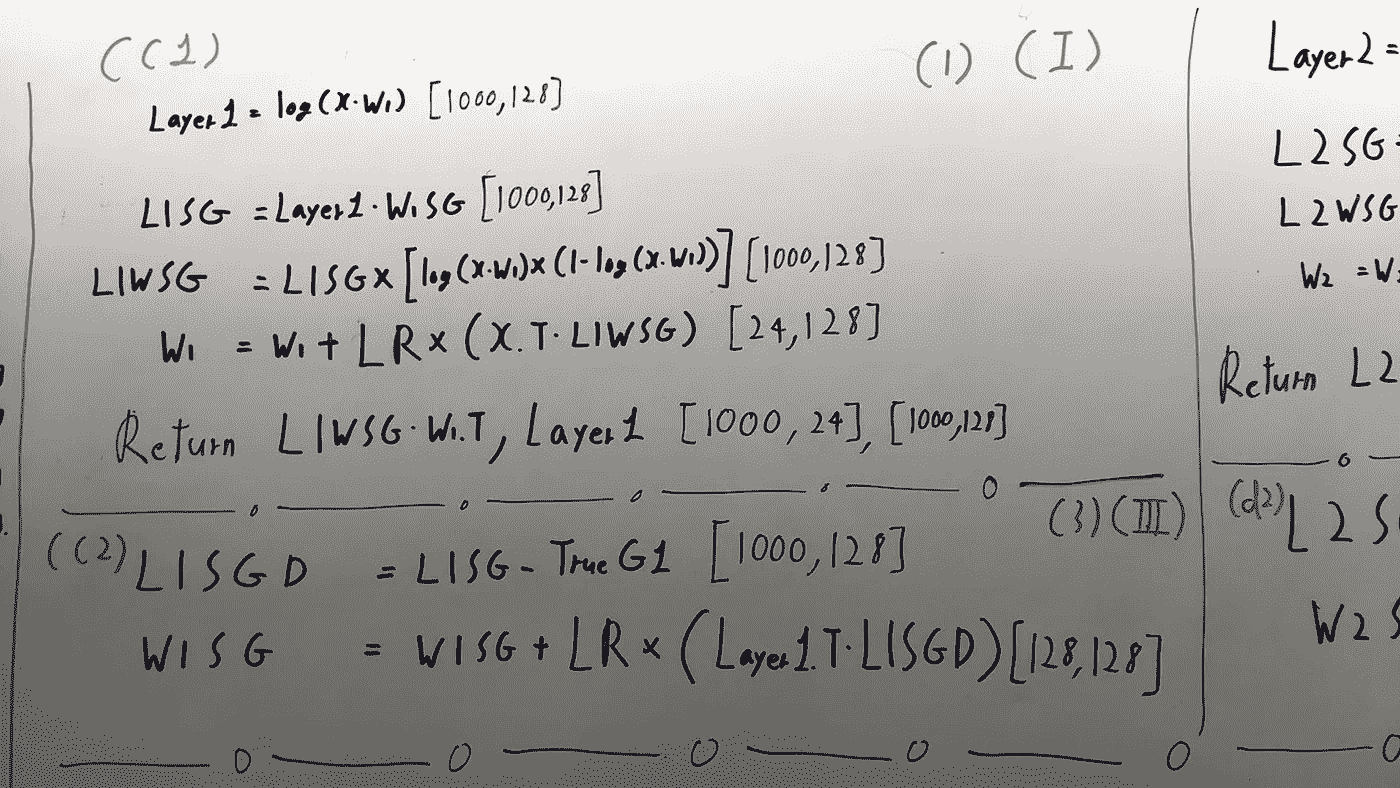 (C1)
(1) (I)
Layer1 = log(x·W1) [1000,128]
L1SG = Layer1·W1SG [1000,128]
L1WSG = L1SG x [log(x·W1)x(1-log(x·W1))] [1000,128]
W1 = W1 + LR x (X.T·L1WSG) [24,128]
Return L1WSG·W1.T, Layer1 [1000, 24], [1000,128]
(3) (III)
(C2) L1SGD = L1SG - True G1 [1000,128]
W1SG = W1SG + LR x (Layer1.T·L1SGD) [128,128]
Layer2 =
L2SG =
L2WSG
W2 = W
Return L2
(d2) L2S
W2S